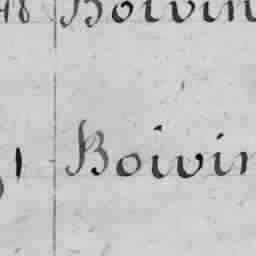 48 Boivin
1 Boivin